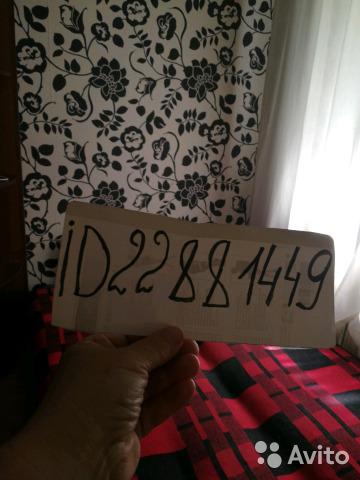 iD22881449
Avito